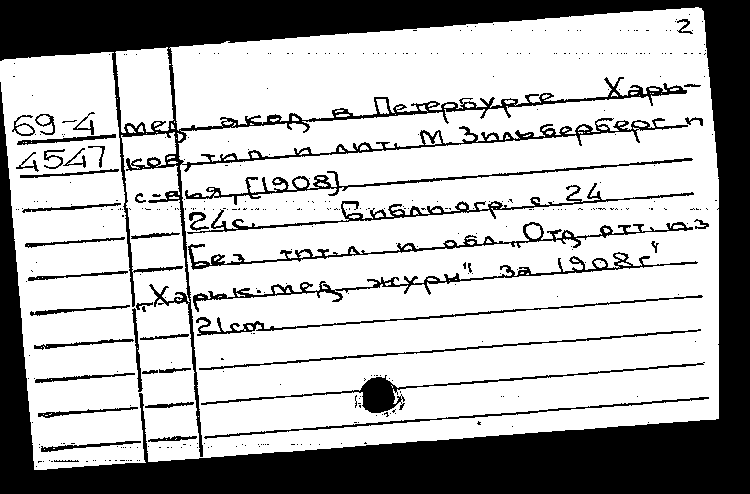 2
69-4 мед. акад. в Петербурге. Харь-
4547 ков, тип. и лит. М. Зильберберг и
с-вья, [1908].
24с. Библиогр.: с. 24
Без тит. л. и обл. „Отд. отт. из
„Харьк. мед. журн" за 1908г"
21см.